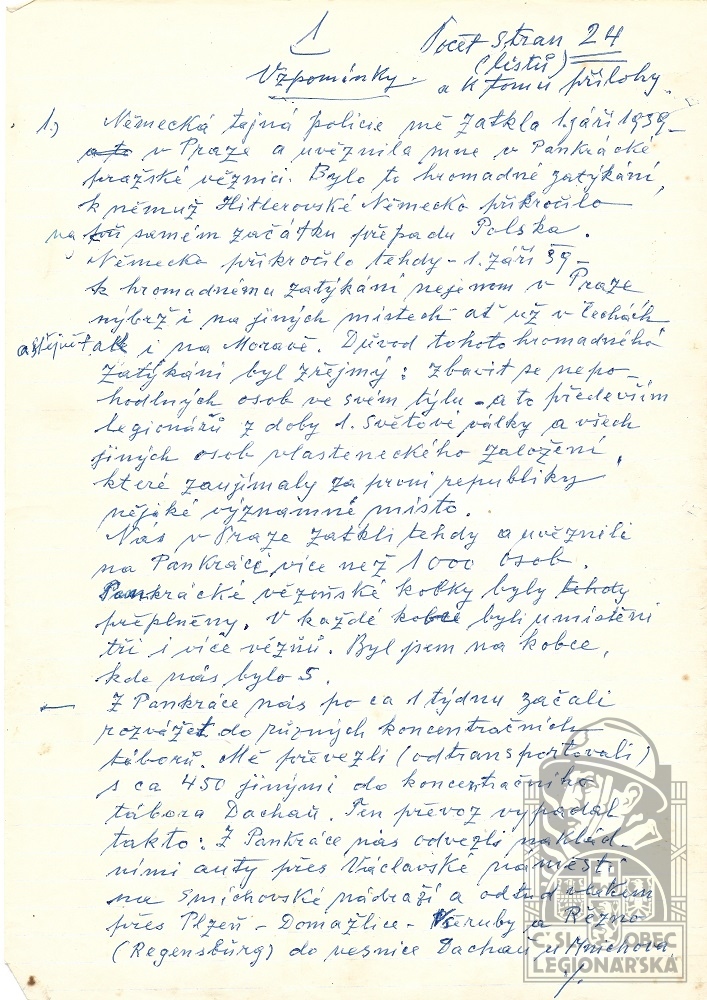 1
Počet stran 24
(listů)
Vzpomínky. a k tomu přílohy.
1.) Německá tajná policie mě zatkla 1. září 1939 –
a to v Praze a uvěznila mne v Pankrácké
pražské věznici. Bylo to hromadné zatýkání,
k němuž Hitlerovské Německo přikročilo
na při samém začátku přepadu Polska.
Německo přikročilo tehdy – 1. září 39 –
k hromadnému zatýkání nejenom v Praze
nýbrž i na jiných místech ať už v Čechách
a stejně tak i na Moravě. Důvod tohoto hromadného
zatýkání byl zřejmý: zbavit se nepo-
hodlných osob ve svém týlu – a to především
legionářů z doby 1. světové války a všech
jiných osob vlasteneckého založení,
které zaujímaly za první republiky
nějaké významné místo.
Nás v Praze zatkli tehdy a uvěznili
na Pankráci více než 1000 osob.
Pankrácké vězeňské kobky byly tehdy
přeplněny. V každé kobce byli umístěni
tři i více vězňů. Byl jsem na kobce,
kde nás bylo 5.
– Z Pankráce nás po ca 1 týdnu začali
rozvážet do různých koncentračních
táborů. Mě převezli (odtransportovali)
s ca 450 jinými do koncentračního
tábora Dachau. Ten převoz vypadal
takto: Z Pankráce nás odvezli náklad-
ními auty přes Václavské náměstí
na Smíchovské nádraží a odtud vlakem
přes Plzeň – Domažlice – Všeruby a Řezno
(Regensburg) do vesnice Dachau u Mnichova
./.
ČSL. OBEC
LEGIONÁŘSKÁ